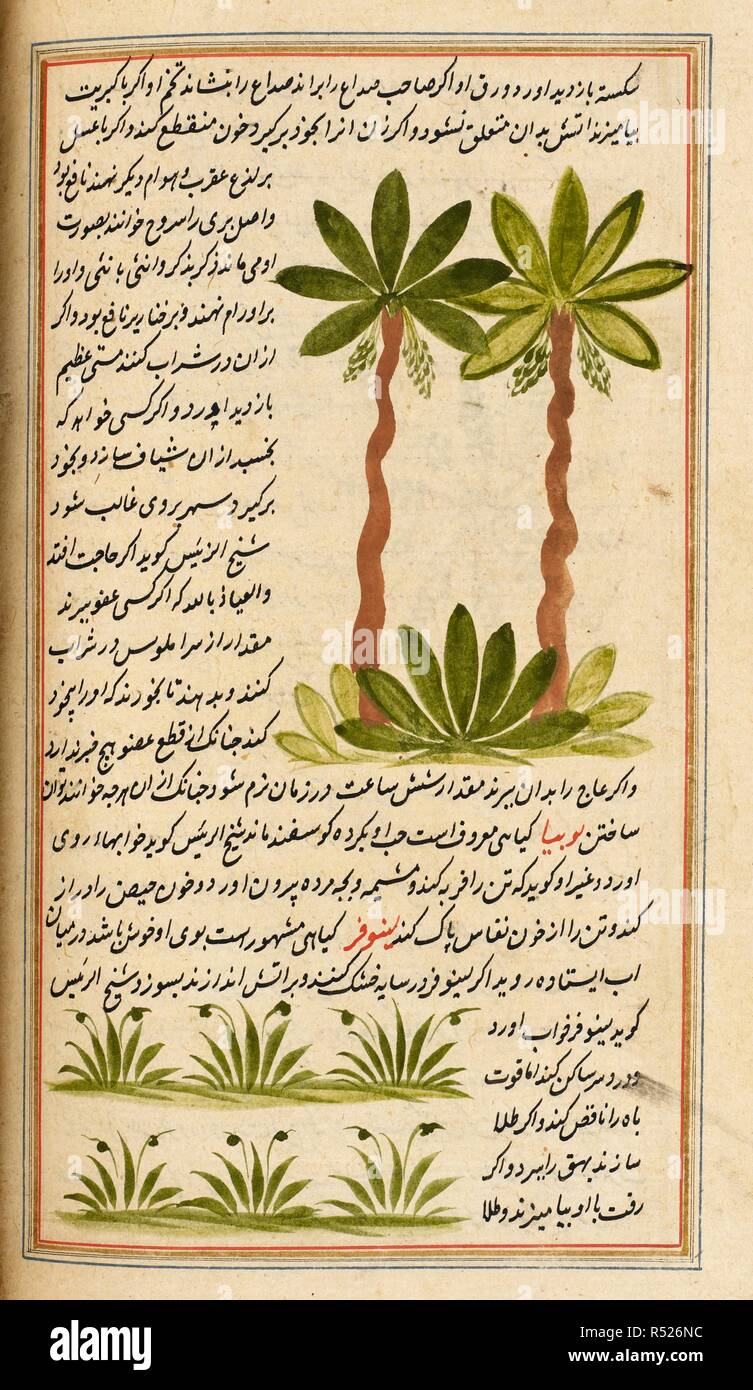 شکسته باز دید اورد و ورق او اکر صاحب صداع را براند صداع را بنشاند تخم او اکر با کبریت
بیامیزند اتش بدان متعلق نشود و اکر زن انرا بخود برکیرد خون منقطع کند و اکر با عسل
بر لذع عقرب و هوام دیکر نهند نافع بود
و اصل بری را سروح خوانند بصورت
اومی ماند ذکر بذکر و انثی بانثی و اورا
بر اورام نهند و بر خنازیر نافع بود و اکر
ازان در شراب کنند مستی عظیم
باز دید اورد و اکر کسی خواهد که
بخسبد ازان شیاف سازد و بخود
برکیرد سهر بروی غالب شود
شیخ الرئیس کوید اکر حاجت افتد
والعیاذ بالله که اکر کسی عضو ببرند
مقدار از سرا ملوس در شراب
کنند و بدهند تا بخورند که اورا بیخود
کند چنانک از قطع عضو هیچ خبر ندارد
و اکر عاج را بدان ببرند مقدار شش ساعت در زمان نرم شود چنانک ازان هرچه خوانند توان
ساختن لوبیا کیاهی معروف است حب او بکرده کوسفند ماند شیخ الرئیس کوید خوابهاء روی
اورد و غیر او کوید که تن را فربه کند و مشیمه و بچه مرده بیرون اورد و خون حیض را دراز
کند و تن را از خون نفاس پاک کند لینوفر کیاهی مشهور است بوی او خوش باشد در میان
اب ایستاده روید اکر لینوفر در سایه خشک کنند و بر اتش اندازند بسوزد شیخ الرئیس
کوید لینوفر خواب اورد
و درد سر ساکن کند اما قوت
باه را ناقص کند و اکر طلا
سازند بهق را ببرد و اکر
زفت با او بیامیزند و طلا
alamy
alamy
Image ID: R526NC
www.alamy.com